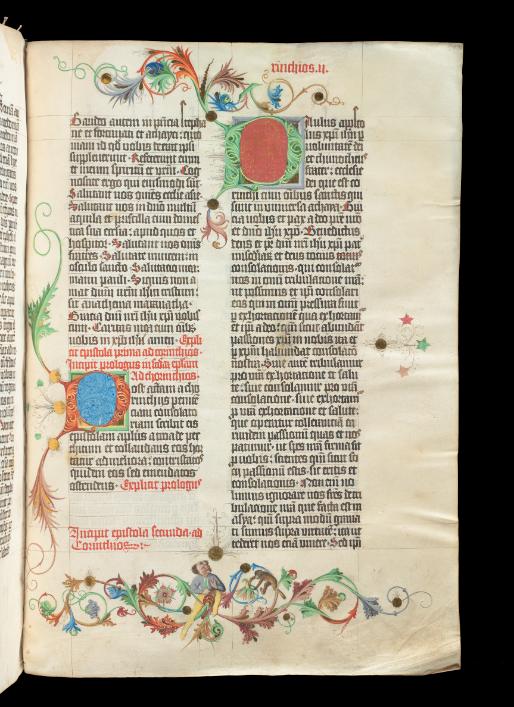 rinthios.ii.
Gaudeo autem in p̄ntia stepha
ne et fortunati et achayci: qm̄
id qd̄ vobis deerat ipsi
supplēuerunt. Refecerunt enim
et meum spiritū et vr̄m. Cog
noscite ergo qui eiusmodi sūt.
Salutant vos om̄es ecclie asie.
Salutant vos in dn̄o multū
aquila et priscilla cum domes
tica sua ecclesia: apud quos et
hospitor. Salutant vos om̄s
fratres. Salutate inuicem in
osculo sancto. Salutatio mea
manu pauli. Si quis non a
mat dn̄m nr̄m ihm cristum:
sit anathema maranatha.
Gracia dn̄i nr̄i ihū xp̄i vobis
cum. Caritas mea cum om̄ibz
vobis in xp̄o ihū amen. Expli
cit epistola prima ad corinthios.
Incipit prologus in scd̄am epistam
Ad chorinthios.
Post actam a cho
rinthijs penitē
tiam consolato
riam scribit eis
epistolam apl̄us a troade per
thitum et collaudans eos hor
tatur ad meliora: contristatos
quidem eos sed emendatos
ostendens. Explicit prologus
Incipit epistola secunda ad
Corinthios
Paulus apl̄o
lus xp̄i ihū p
voluntatē dei
et thimotheus
frater: ecclesie
dei que est co
rinthi cum om̄ibus sanctis qui
sunt in vniuersa achaya. Gra
cia vobis et pax a deo pr̄e nr̄o
et dn̄o ihū xp̄o. Benedictus
deus et pr̄ dn̄i nr̄i ihū xp̄i pat
misericordiarum et deus tocius
consolationis: qui consolat̄
nos in omni tribulatione nr̄a:
vt possimus et ip̄i consolari
eos qui in om̄i pressura sunt
p exhortationē qua exhortamur
et ip̄i a deo. Qm̄ sicut abundāt
passiones xp̄i in nobis ita et
p xp̄m habundat consolatio
nostra. Siue autē tribulamur
pro vr̄a exhortatione et salu
te: siue consolamur pro vr̄a
consolatione: siue exhortamur
p vr̄a exhortatione et salute:
que operatur tollerantiā ea
rundem passionū quas et nos
patimur: vt spes nr̄a firma sit
p vobis: scientes qm̄ sicut socij
passionū estis: sic eritis et
consolationis. Non enī vo
lumus ignorare vos fr̄es de tri
bulatione nr̄a que facta est in
asya: qm̄ supra modū grauati
sumus supra virtutē: ita vt
tederet nos etiā viuere. Sed ip̄i